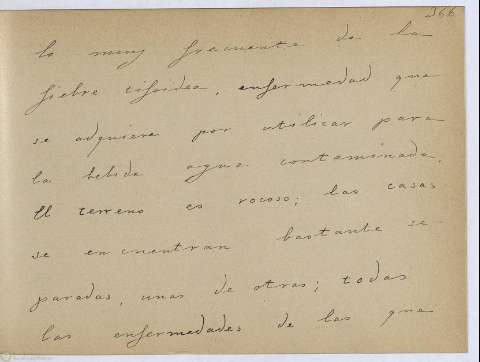 266
lo muy frecuente de la
fiebre tifoidea, enfermedad que
se adquiere por utilizar para
la bebida agua contaminada.
El terreno es rocoso; las casas
se encuentran bastante se-
paradas, unas de otras; todas
las enfermedades de las que